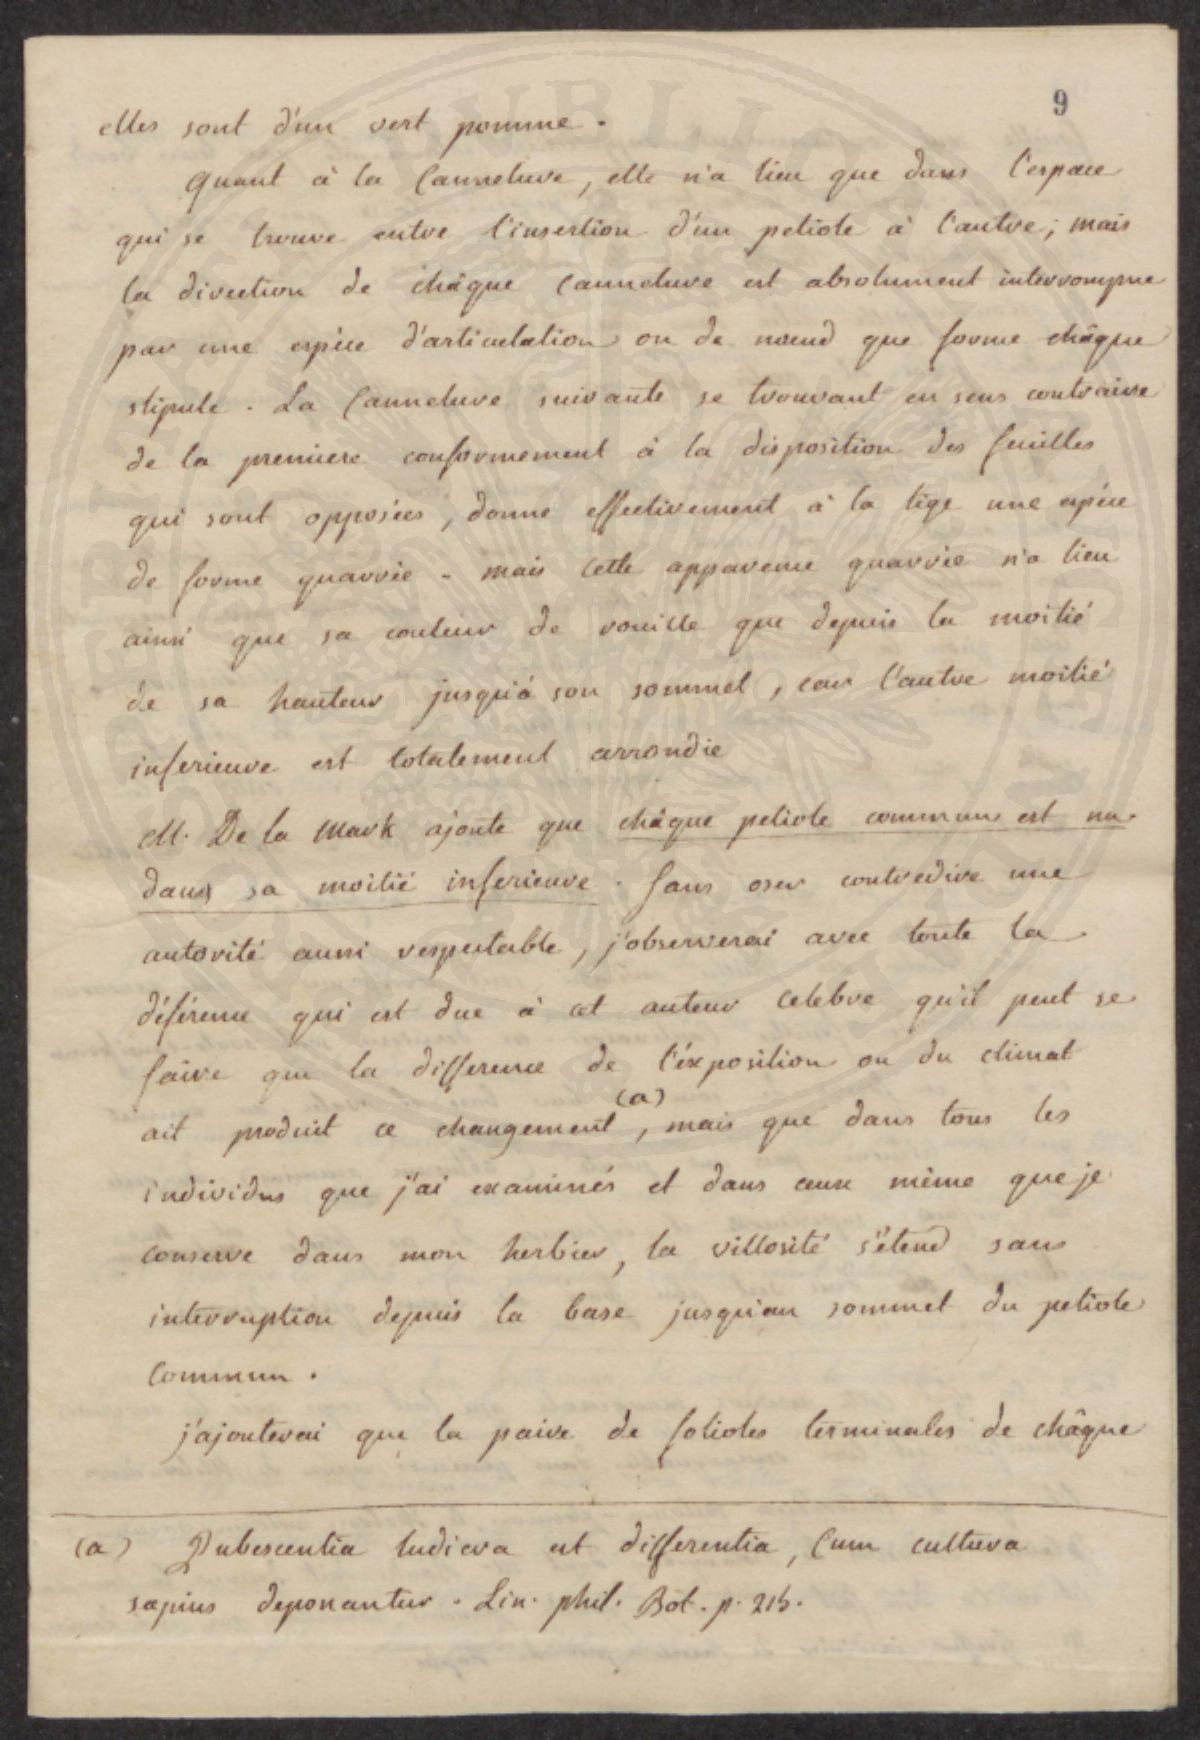 9
elles sont d'un vert pomme.
Quant à la Cannelure, elle n'a lieu que dans l'espace
qui se trouve entre l'insertion d'un petiole à l'autre; mais
la direction de châque Cannelure est absolument interrompue
par une espèce d'articulation ou de nœud que forme châque
stipule. La Cannelure suivante se trouvant en sens contraire
de la premiere conformement à la disposition des feuilles
qui sont opposées, donne effectivement à la tige une espéce
de forme quarrée. mais cette apparence quarrée n'a lieu
ainsi que sa couleur de rouille que depuis la moitié
de sa hauteur jusqu'à son sommet, car l'autre moitié
inferieure est totalement arrondie
M. De la Mark ajoute que châque petiole commun est nu
dans sa moitié inferieure. Sans oser contredire une
autorité aussi respectable, j'observerai avec toute la
déférence qui est due à cet auteur celebre qu'il peut se
faire que la difference de l'éxposition ou du climat
ait produit ce changement (a), mais que dans tous les
individus que j'ai examinés et dans ceux même que je
conserve dans mon herbier, la villosité s'étend sans
interruption depuis la base jusqu'au sommet du petiole
commun.
j'ajouterai que la paire de folioles terminales de châque
(a) Pubescentia ludicra est differentia, Cum cultura
sæpius deponantur. Lin. phil. Bot. p. 215.
PUBLICA